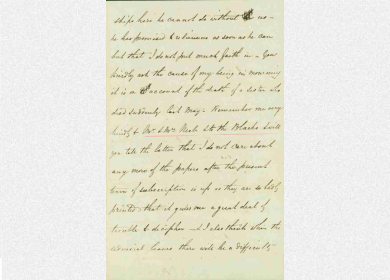 ships here he cannot do without us -
he has promised Erdinans as soon as he can
but that I do not put much faith in - You
kindly ask the cause of my being in mourning
it is on account of the death of a sister who
died suddenly last May - Remember me very
kindly to Mr. & Mrs. the Blacks Will
you take the letter that I do not care about
any more of the papers after the present
term of subscription is up as they are so badly
printed that it gives me a great deal of
trouble to decipher - & I also think when the
Admiral leaves there will be a difficulty